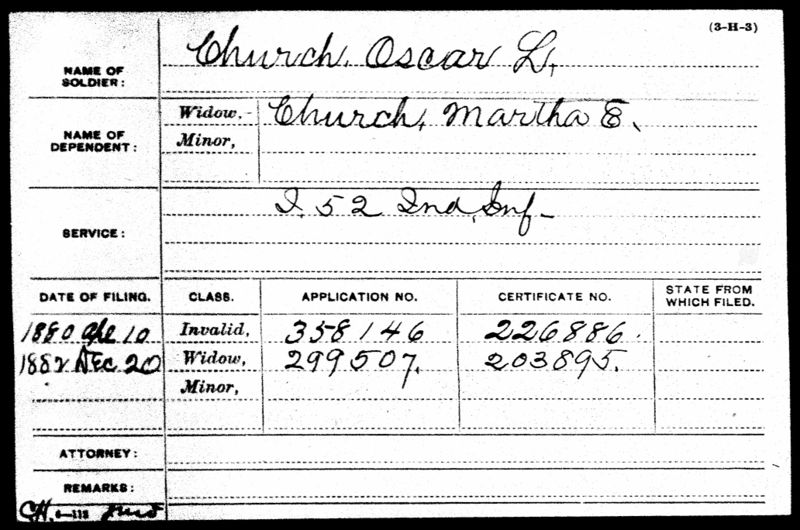 (3-H-3)
NAME OF SOLDIER: Church, Oscar L,
NAME OF DEPENDENT: Widow, Church, Martha E.
Minor,
SERVICE: I. 52 Ind. Inf.
DATE OF FILING. CLASS. APPLICATION NO. CERTIFICATE NO. STATE FROM WHICH FILED.
1880 Apl 10 Invalid, 358146 226886.
1882 DEC 20 Widow, 299507. 203895.
Minor,
ATTORNEY:
REMARKS:
CH. 6—113